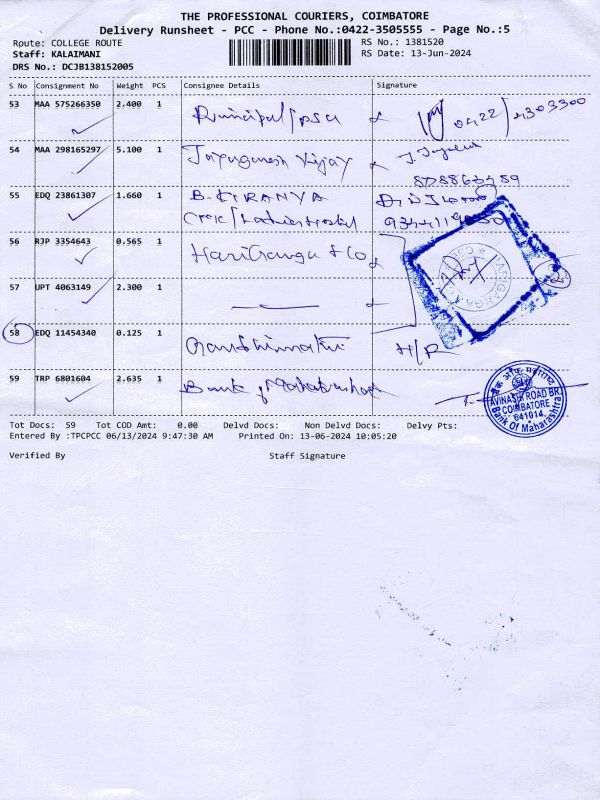 THE PROFESSIONAL COURIERS, COIMBATORE
Delivery Runsheet - PCC - Phone No.:0422-3505555 - Page No.:5
Route: COLLEGE ROUTE RS No.: 1381520
Staff: KALAIMANI RS Date: 13-Jun-2024
DRS No.: DCJB138152005
S No Consignment No Weight PCS Consignee Details Signature
53 MAA 575266350 2.400 1 Principal/psg 0422/4303300
54 MAA 298165297 5.100 1 Vijay
55 EDQ 23861307 1.660 1 B.
56 RJP 3354643 0.565 1 & Co
57 UPT 4063149 2.300 1
58 EDQ 11454340 0.125 1 H/R
59 TRP 6801604 2.635 1 Bank of Maharashtra
AVINASHI ROAD BR.
COIMBATORE
641014
Bank Of Maharashtra
Tot Docs: 59 Tot COD Amt: 0.00 Delvd Docs: Non Delvd Docs: Delvy Pts:
Entered By :TPCPCC 06/13/2024 9:47:30 AM Printed On: 13-06-2024 10:05:20
Verified By Staff Signature